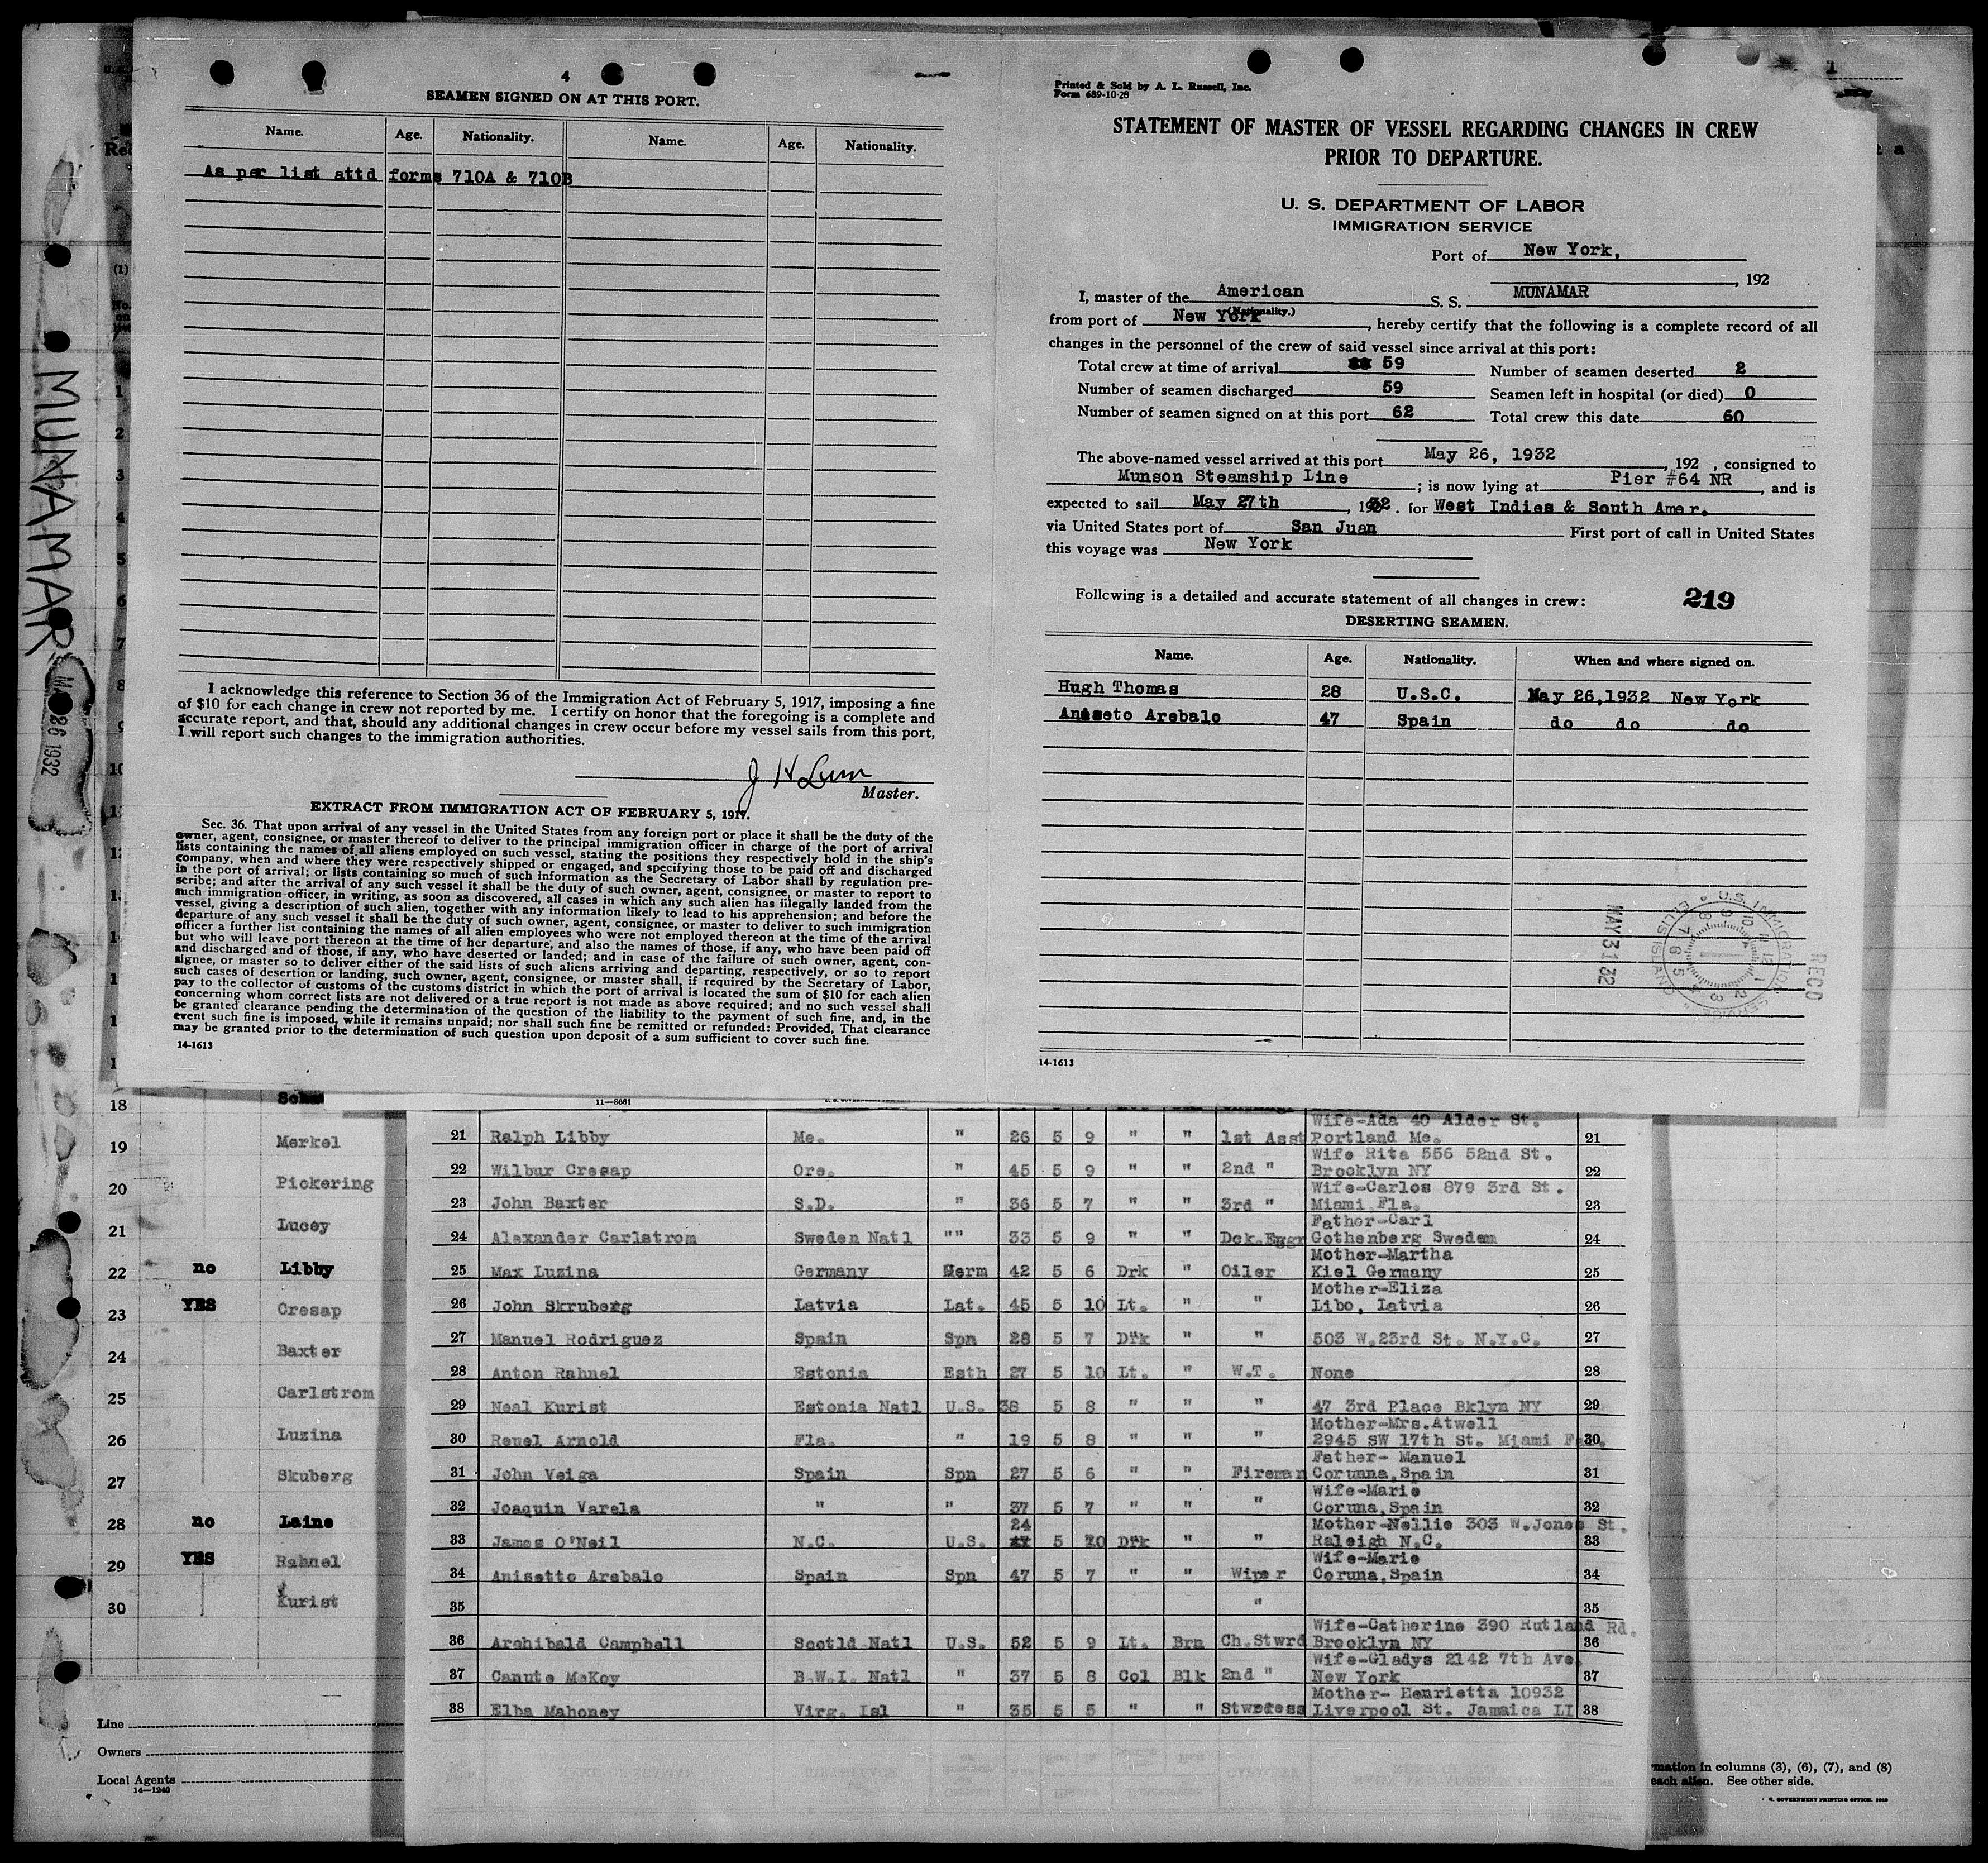 4
SEAMEN SIGNED ON AT THIS PORT.
Name. Age. Nationality. Name. Age. Nationality.
As per list attd forms 710A & 710B
I acknowledge this reference to Section 36 of the Immigration Act of February 5, 1917, imposing a fine
of $10 for each change in crew not reported by me. I certify on honor that the foregoing is a complete and
accurate report, and that, should any additional changes in crew occur before my vessel sails from this port,
I will report such changes to the immigration authorities.
J H Lum
Master.
EXTRACT FROM IMMIGRATION ACT OF FEBRUARY 5, 1917.
Sec. 36. That upon arrival of any vessel in the United States from any foreign port or place it shall be the duty of the
owner, agent, consignee, or master thereof to deliver to the principal immigration officer in charge of the port of arrival
lists containing the names of all aliens employed on such vessel, stating the positions they respectively hold in the ship's
company, when and where they were respectively shipped or engaged, and specifying those to be paid off and discharged
in the port of arrival; or lists containing so much of such information as the Secretary of Labor shall by regulation pre-
scribe; and after the arrival of any such vessel it shall be the duty of such owner, agent, consignee, or master to report to
such immigration officer, in writing, as soon as discovered, all cases in which any such alien has illegally landed from the
vessel, giving a description of such alien, together with any information likely to lead to his apprehension; and before the
departure of any such vessel it shall be the duty of such owner, agent, consignee, or master to deliver to such immigration
officer a further list containing the names of all alien employees who were not employed thereon at the time of the arrival
but who will leave port thereon at the time of her departure, and also the names of those, if any, who have been paid off
and discharged and of those, if any, who have deserted or landed; and in case of the failure of such owner, agent, con-
signee, or master so to deliver either of the said lists of such aliens arriving and departing, respectively, or so to report
such cases of desertion or landing, such owner, agent, consignee, or master shall, if required by the Secretary of Labor,
pay to the collector of customs of the customs district in which the port of arrival is located the sum of $10 for each alien
concerning whom correct lists are not delivered or a true report is not made as above required; and no such vessel shall
be granted clearance pending the determination of the question of the liability to the payment of such fine, and, in the
event such fine is imposed, while it remains unpaid; nor shall such fine be remitted or refunded: Provided, That clearance
may be granted prior to the determination of such question upon deposit of a sum sufficient to cover such fine.
14-1613
Printed & Sold by A. L. Russell, Inc.
Form 689-10-28
1
STATEMENT OF MASTER OF VESSEL REGARDING CHANGES IN CREW
PRIOR TO DEPARTURE.
U. S. DEPARTMENT OF LABOR
IMMIGRATION SERVICE
Port of New York,
, 192
I, master of the American S. S. MUNAMAR
(Nationality.)
from port of New York, hereby certify that the following is a complete record of all
changes in the personnel of the crew of said vessel since arrival at this port:
Total crew at time of arrival 59 Number of seamen deserted 2
Number of seamen discharged 59 Seamen left in hospital (or died) 0
Number of seamen signed on at this port 62 Total crew this date 60
The above-named vessel arrived at this port May 26, 1932, 192 , consigned to
Munson Steamship Line; is now lying at Pier #64 NR, and is
expected to sail May 27th, 1932. for West Indies & South Amer.
via United States port of San Juan First port of call in United States
this voyage was New York
Following is a detailed and accurate statement of all changes in crew:
219
DESERTING SEAMEN.
Name. Age. Nationality. When and where signed on.
Hugh Thomas 28 U.S.C. May 26,1932 New York
Aniseto Arebalo 47 Spain do do do
MAY 31 32
U.S. IMMIGRATION SERVICE ELLIS ISLAND
RECD
14-1613
MUNAMAR
MAY 26 1932
(1)
1
2
3
4
5
6
7
8
9
10
18
19 Merkel
20 Pickering
21 Lucey
22 no Libby
23 YES Cresap
24 Baxter
25 Carlstrom
26 Luzina
27 Skuberg
28 no Laine
29 YES Rahnel
30 Kurist
Line
Owners
Local Agents
14—1240
11—8661
21 Ralph Libby Me. " 26 5 9 " " 1st Asst Wife-Ada 40 Alder St. Portland Me. 21
22 Wilbur Cresap Ore. " 45 5 9 " " 2nd " Wife Rita 556 52nd St. Brooklyn NY 22
23 John Baxter S.D. " 36 5 7 " " 3rd " Wife-Carlos 879 3rd St. Miami Fla. 23
24 Alexander Carlstrom Sweden Natl "" 33 5 9 " " Dck.Eggr Father-Carl Gothenberg Swedem 24
25 Max Luzina Germany Germ 42 5 6 Drk " Oiler Mother-Martha Kiel Germany 25
26 John Skruberg Latvia Lat. 45 5 10 Lt. " " Mother-Eliza Libo, Latvia 26
27 Manuel Rodriguez Spain Spn 28 5 7 Drk " " 503 W.23rd St. N.Y.C. 27
28 Anton Rahnel Estonia Esth 27 5 10 Lt. " W.T. None 28
29 Neal Kurist Estonia Natl U.S. 38 5 8 " " " 47 3rd Place Bklyn NY 29
30 Reuel Arnold Fla. " 19 5 8 " " " Mother-Mrs.Atwell 2945 SW 17th St. Miami Fla. 30
31 John Veiga Spain Spn 27 5 6 " " Fireman Father- Manuel Corunna,Spain 31
32 Joaquin Varela " " 37 5 7 " Wife-Marie Coruna,Spain 32
33 James O'Neil N.C. U.S. 24 5 10 Drk " " Mother-Nellie 303 W.Jones St. Raleigh N.C. 33
34 Anisetto Arebalo Spain Spn 47 5 7 " " Wiper Wife-Marie Coruna,Spain 34
35 " 35
36 Archibald Campbell Scotld Natl U.S. 52 5 9 Lt. Brn Ch.Stwrd Wife-Catherine 390 Rutland Rd. Brooklyn NY 36
37 Canute McKoy B.W.I. Natl " 37 5 8 Col Blk 2nd " Wife-Gladys 2142 7th Ave. New York 37
38 Elba Mahoney Virg. Isl " 35 5 5 " " Stwrdess Mother- Henrietta 10932 Liverpool St. Jamaica LI 38
mation in columns (3), (6), (7), and (8)
each alien. See other side.
GOVERNMENT PRINTING OFFICE